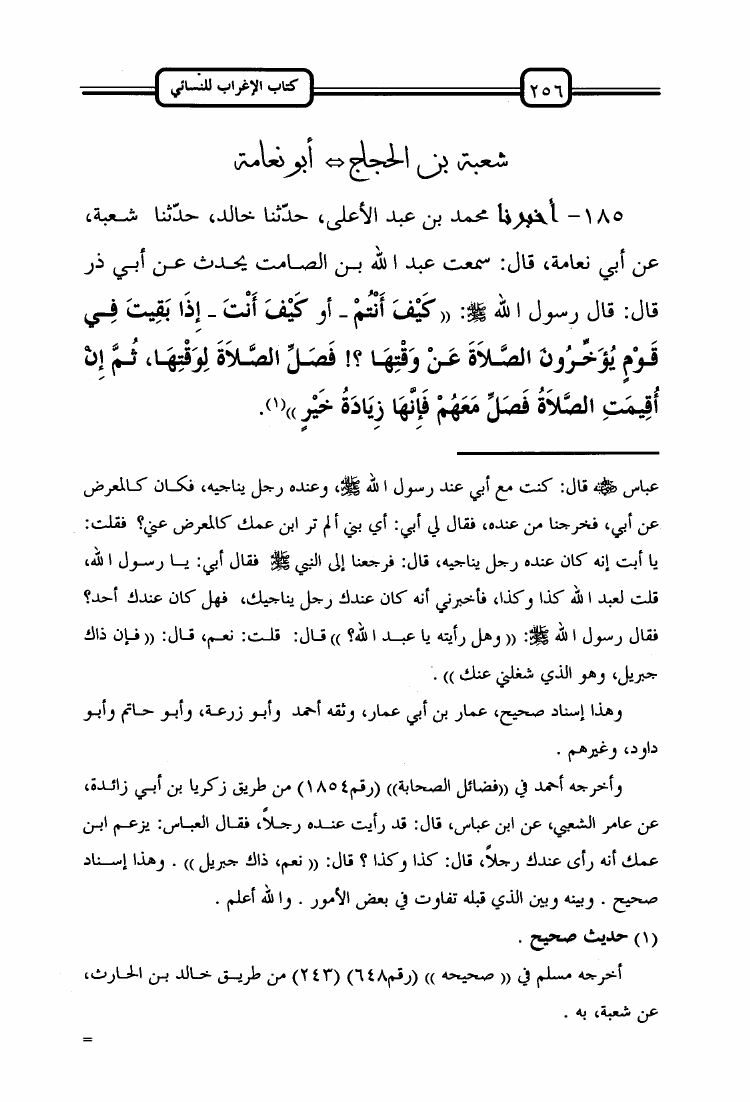 ٢٥٦ كتاب الإغراب للنسائي
شعبة بن الحجاج ⇔ أبو نعامة
١٨٥- أخبرنا محمد بن عبد الأعلى، حدّثنا خالد، حدّثنا شعبة،
عن أبي نعامة، قال: سمعت عبد الله بن الصامت يحدث عن أبي ذر
قال: قال رسول الله ﷺ: «كَيْفَ أَنْتُمْ - أو كَيْفَ أَنْتَ - إِذَا بَقِيتَ فِي
قَوْمٍ يُؤَخِّرُونَ الصَّلاَةَ عَنْ وَقْتِهَا ؟! فَصَلِّ الصَّلاَةَ لِوَقْتِهَا، ثُمَّ إِنْ
أُقِيمَتِ الصَّلاَةُ فَصَلِّ مَعَهُمْ فَإِنَّهَا زِيَادَةُ خَيْرٍ»(١).
عباس ﷺ قال: كنت مع أبي عند رسول الله ﷺ، وعنده رجل يناجيه، فكان كالمعرض
عن أبي، فخرجنا من عنده، فقال لي أبي: أي بني ألم تر ابن عمك كالمعرض عني؟ فقلت:
يا أبت إنه كان عنده رجل يناجيه، قال: فرجعنا إلى النبي ﷺ فقال أبي: يا رسول الله،
قلت لعبد الله كذا وكذا، فأخبرني أنه كان عندك رجل يناجيك، فهل كان عندك أحد؟
فقال رسول الله ﷺ: «وهل رأيته يا عبد الله؟» قال: قلت: نعم، قال: «فإن ذاك
جبريل، وهو الذي شغلني عنك» .
وهذا إسناد صحيح، عمار بن أبي عمار، وثقه أحمد وأبو زرعة، وأبو حاتم وأبو
داود، وغيرهم .
وأخرجه أحمد في «فضائل الصحابة» (رقم١٨٥٤) من طريق زكريا بن أبي زائدة،
عن عامر الشعبي، عن ابن عباس، قال: قد رأيت عنده رجلاً، فقال العباس: يزعم ابن
عمك أنه رأى عندك رجلاً، قال: كذا وكذا ؟ قال: «نعم، ذاك جبريل» . وهذا إسناد
صحيح . وبينه وبين الذي قبله تفاوت في بعض الأمور . والله أعلم .
(١) حديث صحيح .
أخرجه مسلم في «صحيحه» (رقم٦٤٨) (٢٤٣) من طريق خالد بن الحارث،
عن شعبة، به .
=